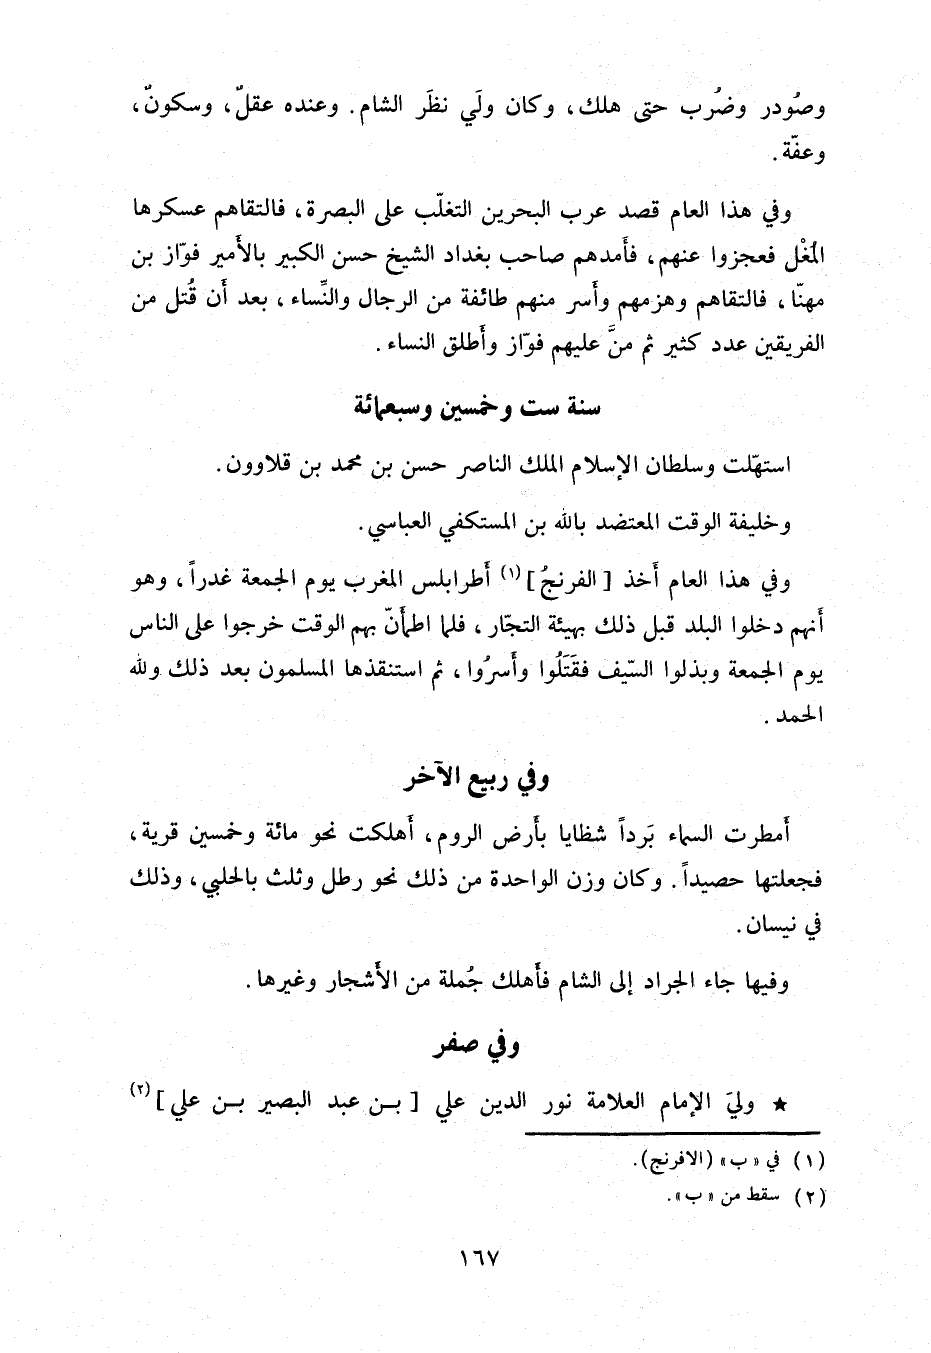 وصُودر وضُرب حتى هلك، وكان ولَي نظَر الشام. وعنده عقلٌ، وسكونٌ،
وعفّة.
وفي هذا العام قصد عرب البحرين التغلّب على البصرة، فالتقاهم عسكرها
المُغْل فعجزوا عنهم، فأَمدهم صاحب بغداد الشيخ حسن الكبير بالأَمير فوّاز بن
مهنّا، فالتقاهم وهزمهم وأَسر منهم طائفة من الرجال والنِّساء، بعد أَن قُتل من
الفريقين عدد كثير ثم منَّ عليهم فوّاز وأَطلق النساء.
سنة ست وخمسين وسبعمائة
استهّلت وسلطان الإسلام الملك الناصر حسن بن محمد بن قلاوون.
وخليفة الوقت المعتضد بالله بن المستكفي العباسي.
وفي هذا العام أَخذ [الفرنجُ](١) أَطرابلس المغرب يوم الجمعة غدراً، وهو
أَنهم دخلوا البلد قبل ذلك بهيئة التجّار، فلما اطمأَنّ بهم الوقت خرجوا على الناس
يوم الجمعة وبذلوا السّيف فقَتَلُوا وأَسرُوا، ثم استنقذها المسلمون بعد ذلك ولله
الحمد.
وفي ربيع الآخر
أَمطرت السماء بَرداً شظايا بأَرض الروم، أَهلكت نحو مائة وخمسين قرية،
فجعلتها حصيداً. وكان وزن الواحدة من ذلك نحو رطل وثلث بالحلبي، وذلك
في نيسان.
وفيها جاء الجراد إلى الشام فأَهلك جُملة من الأَشجار وغيرها.
وفي صفر
★ وليَ الإمام العلامة نور الدين علي [بن عبد البصير بن علي](٢)
(١) في «ب» (الافرنج).
(٢) سقط من «ب».
١٦٧